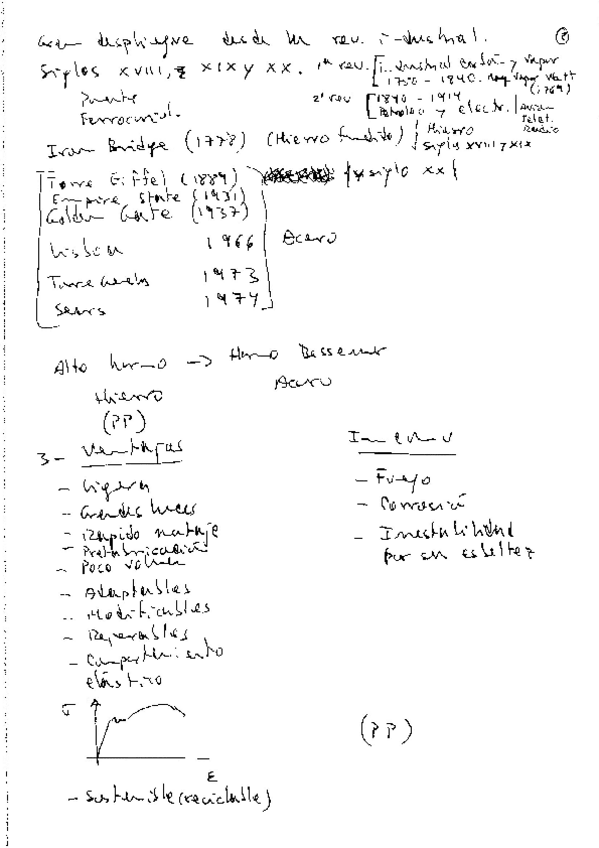 Gran despliegue desde la rev. industrial.
Siglos XVIII, XIX y XX. 1ª rev. [industrial carbón y vapor
1750 - 1840. maq vapor Watt
(1769)
Puente
Ferrocarril.
2ª rev [1840 - 1914
Petróleo y electr. | Avión
Telef.
Radio
Iron Bridge (1778) (Hierro fundido) { Hierro
siglos XVIII y XIX
Torre Eiffel (1889) { y siglo XX {
Empire State (1931)
Golden Gate (1937)
Lisboa 1966 Acero
Torres Gemelas 1973
Sears 1974
Alto horno -> Horno Bessemer
Hierro Acero
(PP)
3- Ventajas
- Ligera
- Grandes luces
- Rápido montaje
- Prefabricación
- Poco volumen
- Adaptables
- Modificables
- Reparables
- Comportamiento
elástico
σ
ε
- Sostenible (reciclable)
Inconv
- Fuego
- Corrosión
- Inestabilidad
por su esbeltez
(PP)